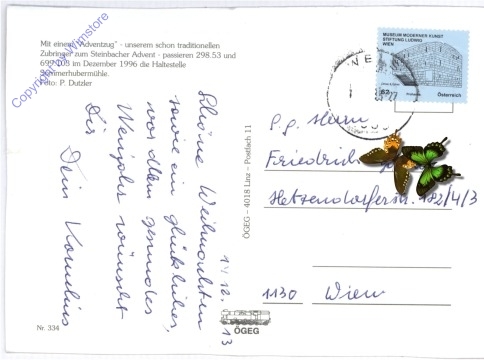 Mit einem "Adventzug" - unserem schon traditionellen
Zubringer zum Steinbacher Advent - passieren 298.53 und
im Dezember 1996 die Haltestelle
Foto: P. Dutzler
Copyright by Wimstore
Schöne Weihnachten
sowie ein glückliches,
vor allem gesundes
Neujahr wünscht
Dir
Dein Kornelius
14 12. 13
Nr. 334
ÖGEG – 4018 Linz – Postfach 11
ÖGEG
MUSEUM MODERNER KUNST
STIFTUNG LUDWIG
WIEN
62
Österreich
P.p. Herrn
Friedrich
Hetzendorferstr. 182/4/3
1130 Wien